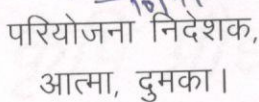 परियोजना निदेशक,
आत्मा, दुमका।